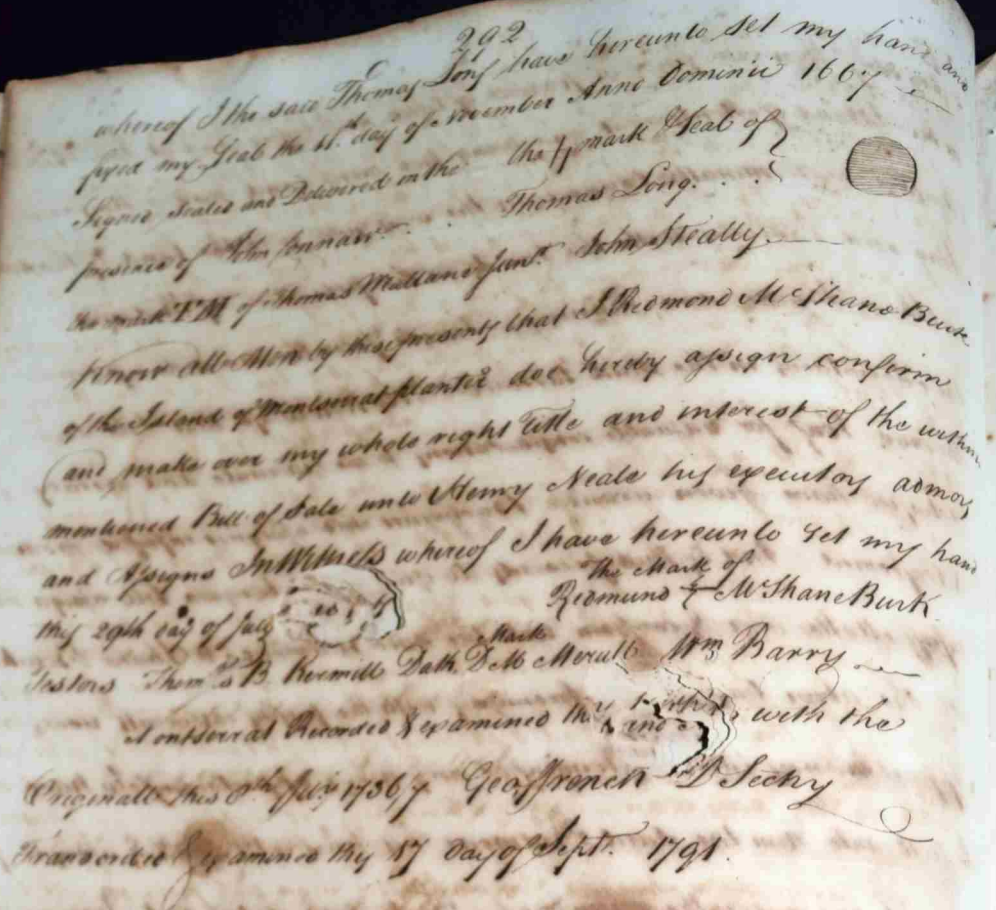 292
whereof I the said Thomas Long have hereunto set my hand and
fixed my Seal the 11th day of November Anno Dominie 1667
Signed Sealed and Delivered in the the mark & Seal of
presence of John Thomas Long.
the mark TM of Thomas Mullano Junr. John Steally
Know all Men by these presents that I Redmond McShane Burk
of the Island of Montserrat planter doe hereby assign confirm
and make over my whole right title and interest of the within
mentioned Bill of Sale unto Henry Neale his executors admors
and Assigns In Witness whereof I have hereunto Set my hand
The Mark of
this 29th day of July Redmund McShane Burk
Mark
Testors Thom.s B D M Wm Barry
Montserrat Recorded & examined this and with the
Originall this 8th July 1736/7 Geo Ffrench D Secty
& examined this 17 day of Sept. 1791.